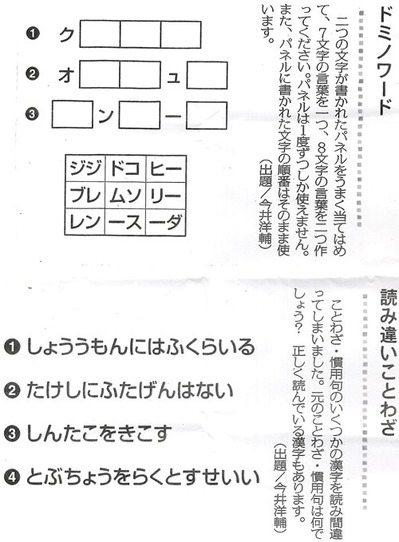 ドミノワード
二つの文字が書かれたパネルをうまく当てはめ
て、7文字の言葉を一つ、8文字の言葉を二つ作
ってください。パネルは1度ずつしか使えません。
また、パネルに書かれた文字の順番はそのまま使
います。
(出題/今井洋輔)
❶ ク
❷ オ ュ
❸ ン ー
ジジ ドコ ヒー
ブレ ムソ リー
レン ース ーダ
読み違いことわざ
ことわざ・慣用句のいくつかの漢字を読み間違
ってしまいました。元のことわざ・慣用句は何で
しょう? 正しく読んでいる漢字もあります。
(出題/今井洋輔)
❶ しょううもんにはふくらいる
❷ たけしにふたげんはない
❸ しんたこをきこす
❹ とぶちょうをらくとすせいい